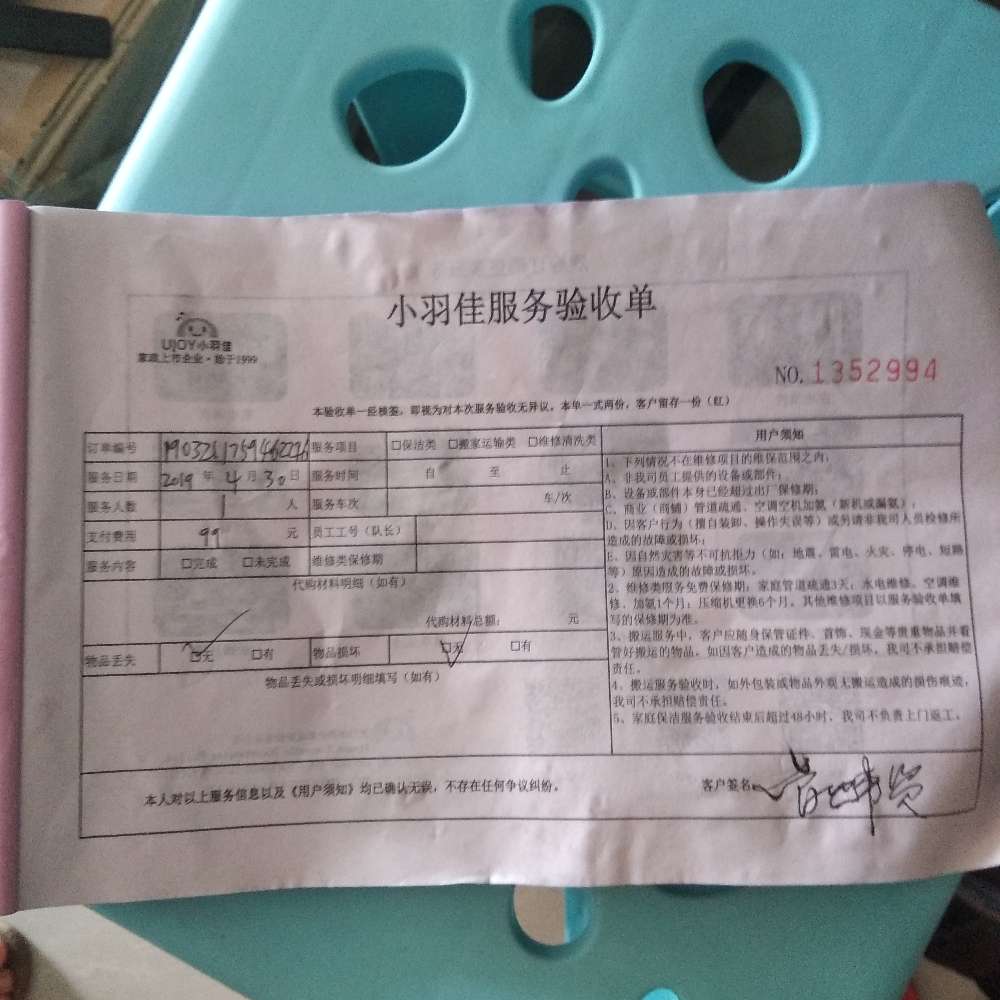 小羽佳服务验收单
UJOY小羽佳
家政上市企业·始于1999
NO. 1352994
本验收单一经核签，即视为对本次服务验收无异议。本单一式两份，客户留存一份（红）
订单编号 服务项目 □保洁类 □搬家运输类 □维修清洗类
服务日期 2019 年 4 月 30 日 服务时间 自 至 止
服务人数 1 人 服务车次 车/次
支付费用 99 元 员工工号（队长）
服务内容 □完成 □未完成 维修类保修期
代购材料明细（如有）
代购材料总额： 元
物品丢失 □无 □有 物品损坏 □无 □有
物品丢失或损坏明细填写（如有）
用户须知
1、下列情况不在维修项目的维保范围之内：
A、非我司员工提供的设备或部件；
B、设备或部件本身已经超过出厂保修期；
C、商业（商铺）管道疏通、空调空机加氨（新机或漏氨）；
D、因客户行为（擅自装卸、操作失误等）或另请非我司人员检修所
造成的故障或损坏；
E、因自然灾害等不可抗拒力（如：地震、雷电、火灾、停电、短路
等）原因造成的故障或损坏。
2、维修类服务免费保修期：家庭管道疏通3天；水电维修、空调维
修、加氨1个月；压缩机更换6个月。其他维修项目以服务验收单填
写的保修期为准。
3、搬运服务中，客户应随身保管证件、首饰、现金等贵重物品并看
管好搬运的物品。如因客户造成的物品丢失/损坏，我司不承担赔偿
责任。
4、搬运服务验收时，如外包装或物品外观无搬运造成的损伤痕迹，
我司不承担赔偿责任。
5、家庭保洁服务验收结束后超过48小时，我司不负责上门返工。
本人对以上服务信息以及《用户须知》均已确认无误，不存在任何争议纠纷。
客户签名：